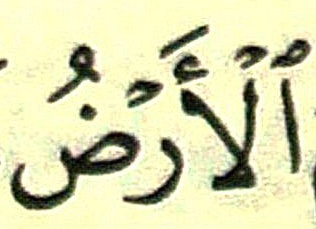 ٱلْأَرْضُ